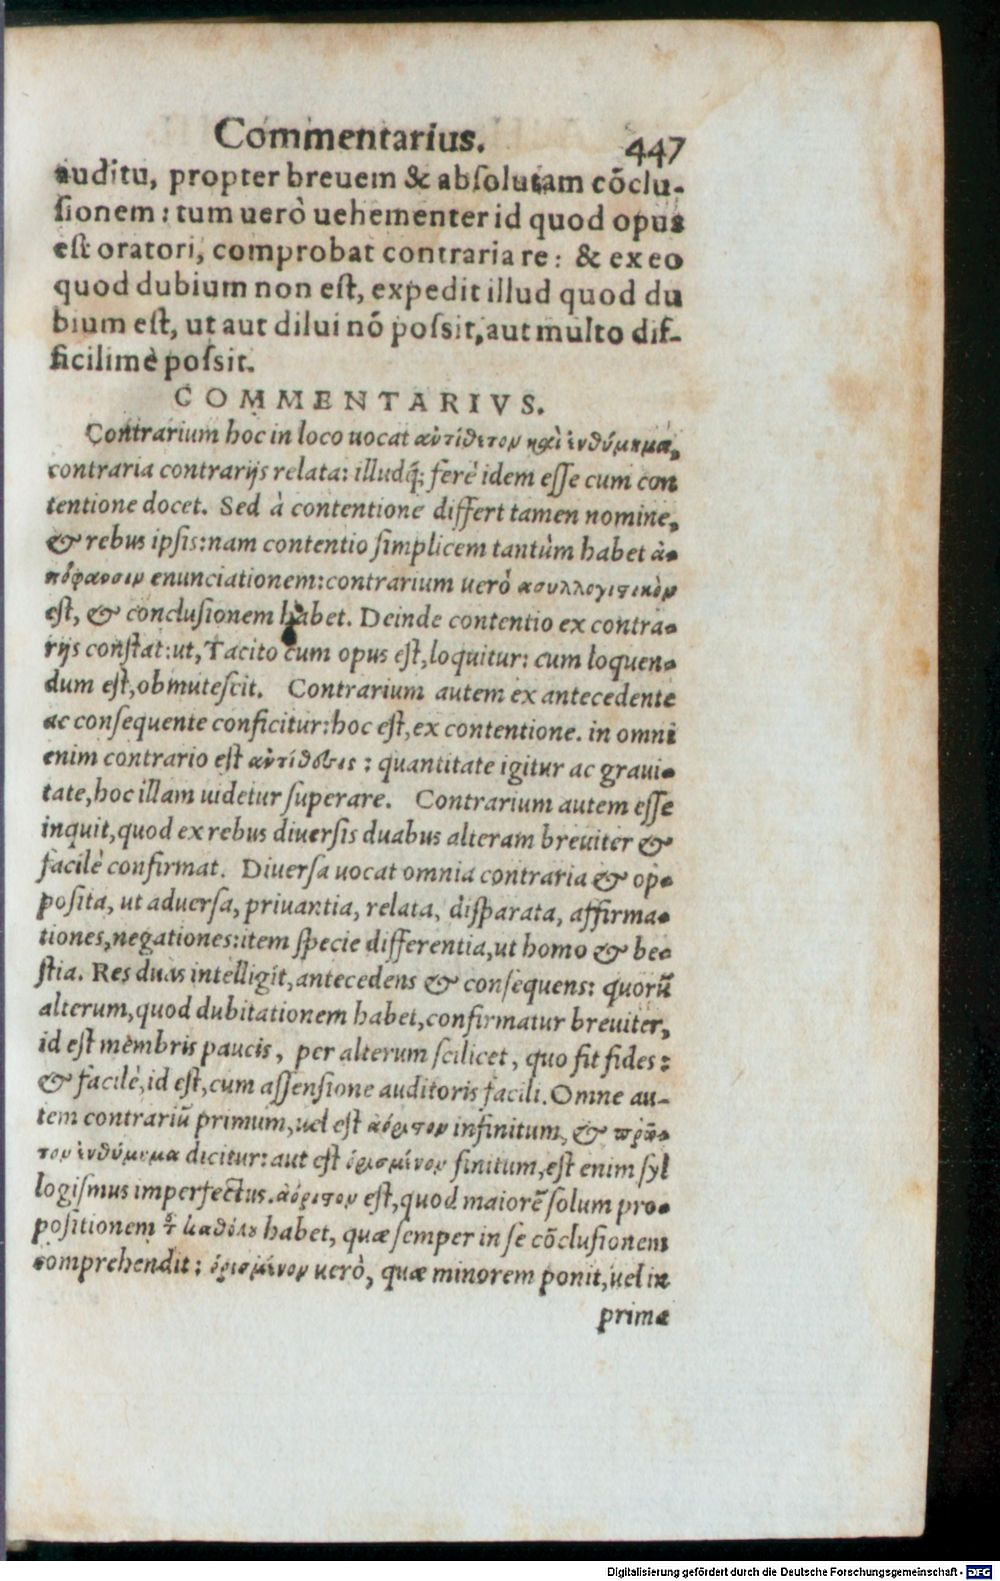 Commentarius. 447
auditu, propter breuem & absolutam cōclu-
sionem: tum uerò uehementer id quod opus
est oratori, comprobat contraria re: & ex eo
quod dubium non est, expedit illud quod du
bium est, ut aut dilui nō possit, aut multo dif-
ficilimè possit.
COMMENTARIVS.
Contrarium hoc in loco uocat ἀντίθετον καὶ ἐνθύμημα,
contraria contrarijs relata: illudq́; ferè idem esse cum con
tentione docet. Sed à contentione differt tamen nomine,
& rebus ipsis: nam contentio simplicem tantùm habet ἀ-
πόφανσιν enunciationem: contrarium uerò ασυλλογιστικὸν
est, & conclusionem habet. Deinde contentio ex contra-
rijs constat: ut, Tacito cum opus est, loquitur: cum loquen-
dum est, obmutescit. Contrarium autem ex antecedente
ac consequente conficitur: hoc est, ex contentione. in omni
enim contrario est ἀντίθεσις: quantitate igitur ac graui-
tate, hoc illam uidetur superare. Contrarium autem esse
inquit, quod ex rebus diuersis duabus alteram breuiter &
facilè confirmat. Diuersa uocat omnia contraria & op-
posita, ut aduersa, priuantia, relata, disparata, affirma-
tiones, negationes: item specie differentia, ut homo & be-
stia. Res duas intelligit, antecedens & consequens: quorū
alterum, quod dubitationem habet, confirmatur breuiter,
id est membris paucis, per alterum scilicet, quo fit fides:
& facilè, id est, cum assensione auditoris facili. Omne au-
tem contrariū primum, uel est ἀόριστον infinitum, & πρῶ-
τον ἐνθύμημα dicitur: aut est ὁρισμένον finitum, est enim syl
logismus imperfectus. ἀόριστον est, quod maiorē solum pro-
positionem τ̀ καθόλου habet, quæ semper in se cōclusionem
comprehendit: ὁρισμένον uerò, quæ minorem ponit, uel in
prima
Digitalisierung gefördert durch die Deutsche Forschungsgemeinschaft - DFG